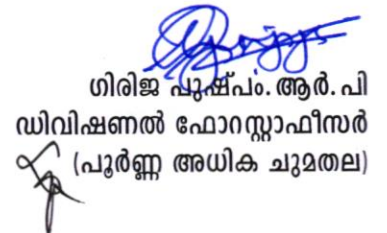 ഗിരിജ പുഷ്പം. ആർ.പി
ഡിവിഷണൽ ഫോറസ്റ്റാഫീസർ
(പൂർണ്ണ അധിക ചുമതല)